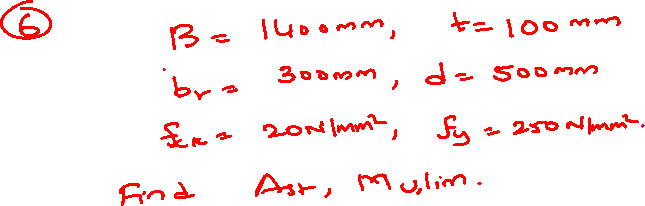 6
B = 1400mm, t = 100 mm
br = 300mm, d = 500mm
fck = 20N/mm², fy = 250 N/mm².
Find Ast, Mu,lim.